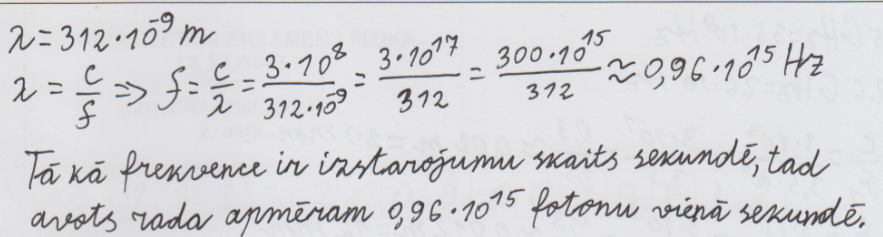 λ = 312 · 10⁻⁹ m
λ = c/f ⇒ f = c/λ = 3 · 10⁸/312 · 10⁻⁹ = 3 · 10¹⁷/312 = 300 · 10¹⁵/312 ≈ 0,96 · 10¹⁵ Hz
Tā kā frekvence ir izstarojumu skaits sekundē, tad
avots rada apmēram 0,96 · 10¹⁵ fotonu vienā sekundē.